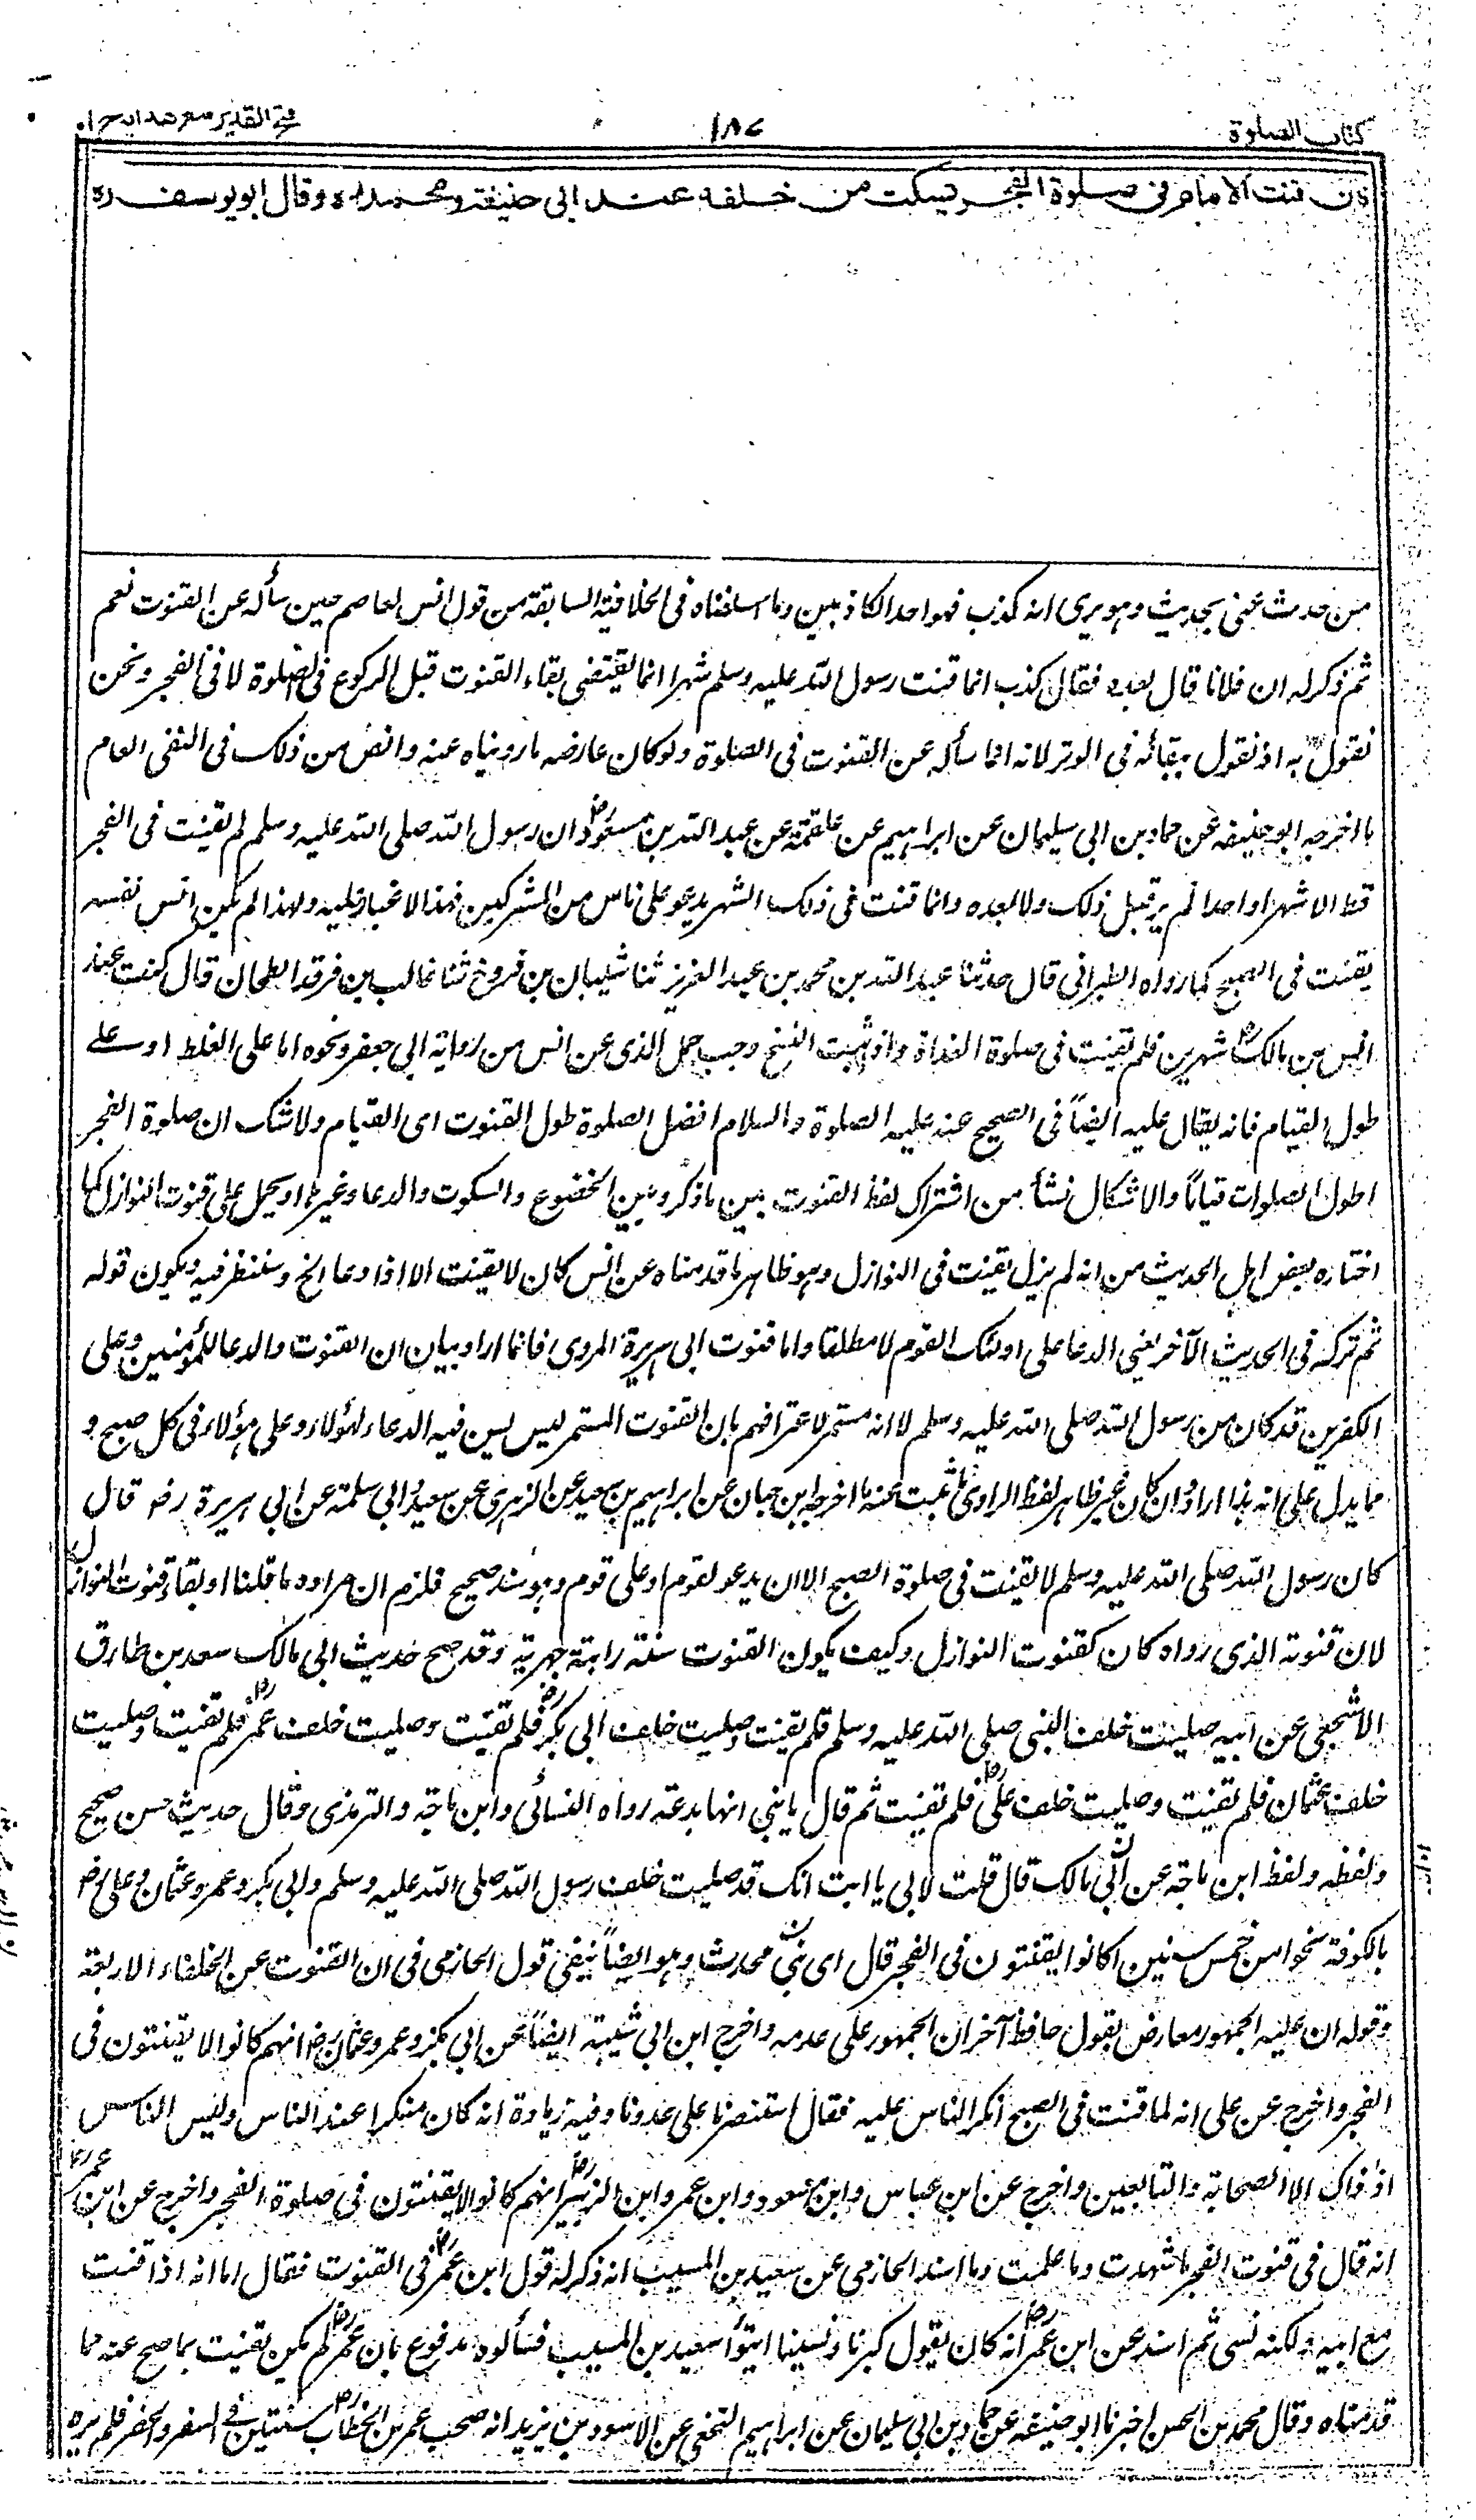 كتاب الصلوة
١٨٧
فتح القدير مع هدايه ج ١
فان قنت الامام فى صلوة الفجر يسكت من خلفه عند ابى حنيفة ومحمد ره وقال ابو يوسف ره
من حدث عنى بحديث وهو يرى انه كذب فهو احد الكاذبين وما اسلفناه فى الخلافية السابقة من قول انس لعاصم حين سأله عن القنوت نعم
ثم ذكر له ان فلانا قال بعده فقال كذب انما قنت رسول الله صلى الله عليه وسلم شهرا انما يقتضى بقاء القنوت قبل الركوع فى الصلوة لا فى الفجر ونحن
نقول به اذ نقول ببقائه فى الوتر لانه انما سأله عن القنوت فى الصلوة ولو كان عارضه ما رويناه عنه وانص من ذلك فى النفى العام
ما اخرجه ابو حنيفه عن حماد بن ابى سليمان عن ابراهيم عن علقمة عن عبد الله بن مسعود رض ان رسول الله صلى الله عليه وسلم لم يقنت فى الفجر
قط الا شهرا واحدا لم ير قبل ذلك ولا بعده وانما قنت فى ذلك الشهر يدعو على ناس من المشركين فهذا لا غبار عليه ولهذا لم يكن انس نفسه
يقنت فى الصبح كما رواه الطبرانى قال حدثنا عبد الله بن محمد بن عبد العزيز ثنا شيبان بن فروخ ثنا غالب بن فرقد الطحان قال كنت عند
انس بن مالك رض شهرين فلم يقنت فى صلوة الغداة واذ ثبت النسخ وجب حمل الذى عن انس من رواية ابى جعفر ونحوه اما على الغلط او على
طول القيام فانه يقال عليه ايضاً فى الصحيح عنه عليه الصلوة والسلام افضل الصلوة طول القنوت اى القيام ولا شك ان صلوة الفجر
اطول الصلوات قياماً والاشكال نشأ من اشتراك لفظ القنوت بين ما ذكر وبين الخضوع والسكوت والدعا وغيرها او يحمل على قنوت النوازل كما
اختاره بعض اهل الحديث من انه لم يزل يقنت فى النوازل وهو ظاهر ما قدمناه عن انس كان لا يقنت الا اذا دعا الخ وسننظر فيه ويكون قوله
ثم تركه فى الحديث الآخر يعنى الدعا على اولئك القوم لا مطلقا واما قنوت ابى هريرة المروى فانما اراد بيان ان القنوت والدعا للمؤمنين وعلى
الكفرين قد كان من رسول الله صلى الله عليه وسلم لا انه مستمر لاعترافهم بان القنوت المستمر ليس يسن فيه الدعاء لهؤلاء وعلى هؤلاء فى كل صبح و
مما يدل على انه هذا اراد وان كان غير ظاهر لفظ الراوى ما ثبت عنه ما اخرجه ابن حبان عن ابراهيم بن سعيد عن الزهرى عن سعيد وابى سلمة عن ابى هريرة رض قال
كان رسول الله صلى الله عليه وسلم لا يقنت فى صلوة الصبح الا ان يدعو لقوم او على قوم وهو سند صحيح فلزم ان مراده ما قلنا او بقاء قنوت النوازل
لان قنوته الذى رواه كان كقنوت النوازل وكيف يكون القنوت سنة راتبة جهرية وقد صح حديث ابى مالك سعد بن طارق
الاشجعى عن ابيه صليت خلف النبى صلى الله عليه وسلم فلم يقنت وصليت خلف ابى بكر رض فلم يقنت وصليت خلف عمر رض فلم يقنت وصليت
خلف عثمان فلم يقنت وصليت خلف على رض فلم يقنت ثم قال يا بنى انها بدعة رواه النسائى وابن ماجة والترمذى وقال حديث حسن صحيح
ولفظه ولفظ ابن ماجة عن ابى مالك قال قلت لابى يا ابت انك قد صليت خلف رسول الله صلى الله عليه وسلم وابى بكر وعمر وعثمان وعلى رض
بالكوفة نحوا من خمس سنين اكانوا يقنتون فى الفجر قال اى بنى محدث وهو ايضاً ينفى قول الحازمى فى ان القنوت عن الخلفاء الاربعة
وقوله ان عليه الجمهور معارض بقول حافظ آخر ان الجمهور على عدمه واخرج ابن ابى شيبة ايضاً عن ابى بكر وعمر وعثمان رض انهم كانوا لا يقنتون فى
الفجر واخرج عن على انه لما قنت فى الصبح انكر الناس عليه فقال استنصرنا على عدونا وفيه زيادة انه كان منكرا عند الناس وليس الناس
اذ ذاك الا الصحابة والتابعين واخرج عن ابن عباس وابن مسعود وابن عمر وابن الزبير رض انهم كانوا لا يقنتون فى صلوة الفجر واخرج عن ابن عمر رض
انه قال فى قنوت الفجر ما شهدت وما علمت وما اسند الحازمى عن سعيد بن المسيب انه ذكر له قول ابن عمر رض فى القنوت فقال اما انه اذا قنت
مع ابيه ولكنه نسى ثم اسند عن ابن عمر رض انه كان يقول كبرنا ونسينا ايتوا سعيد بن المسيب فسألوه مدفوع بان عمر رض لم يكن يقنت بما صح عنه مما
قدمناه وقال محمد بن الحسن اخبرنا ابو حنيفه عن حماد بن ابى سليمان عن ابراهيم النخعى عن الاسود بن يزيد انه صحب عمر بن الخطاب رض سنتين فى السفر والحضر فلم يره